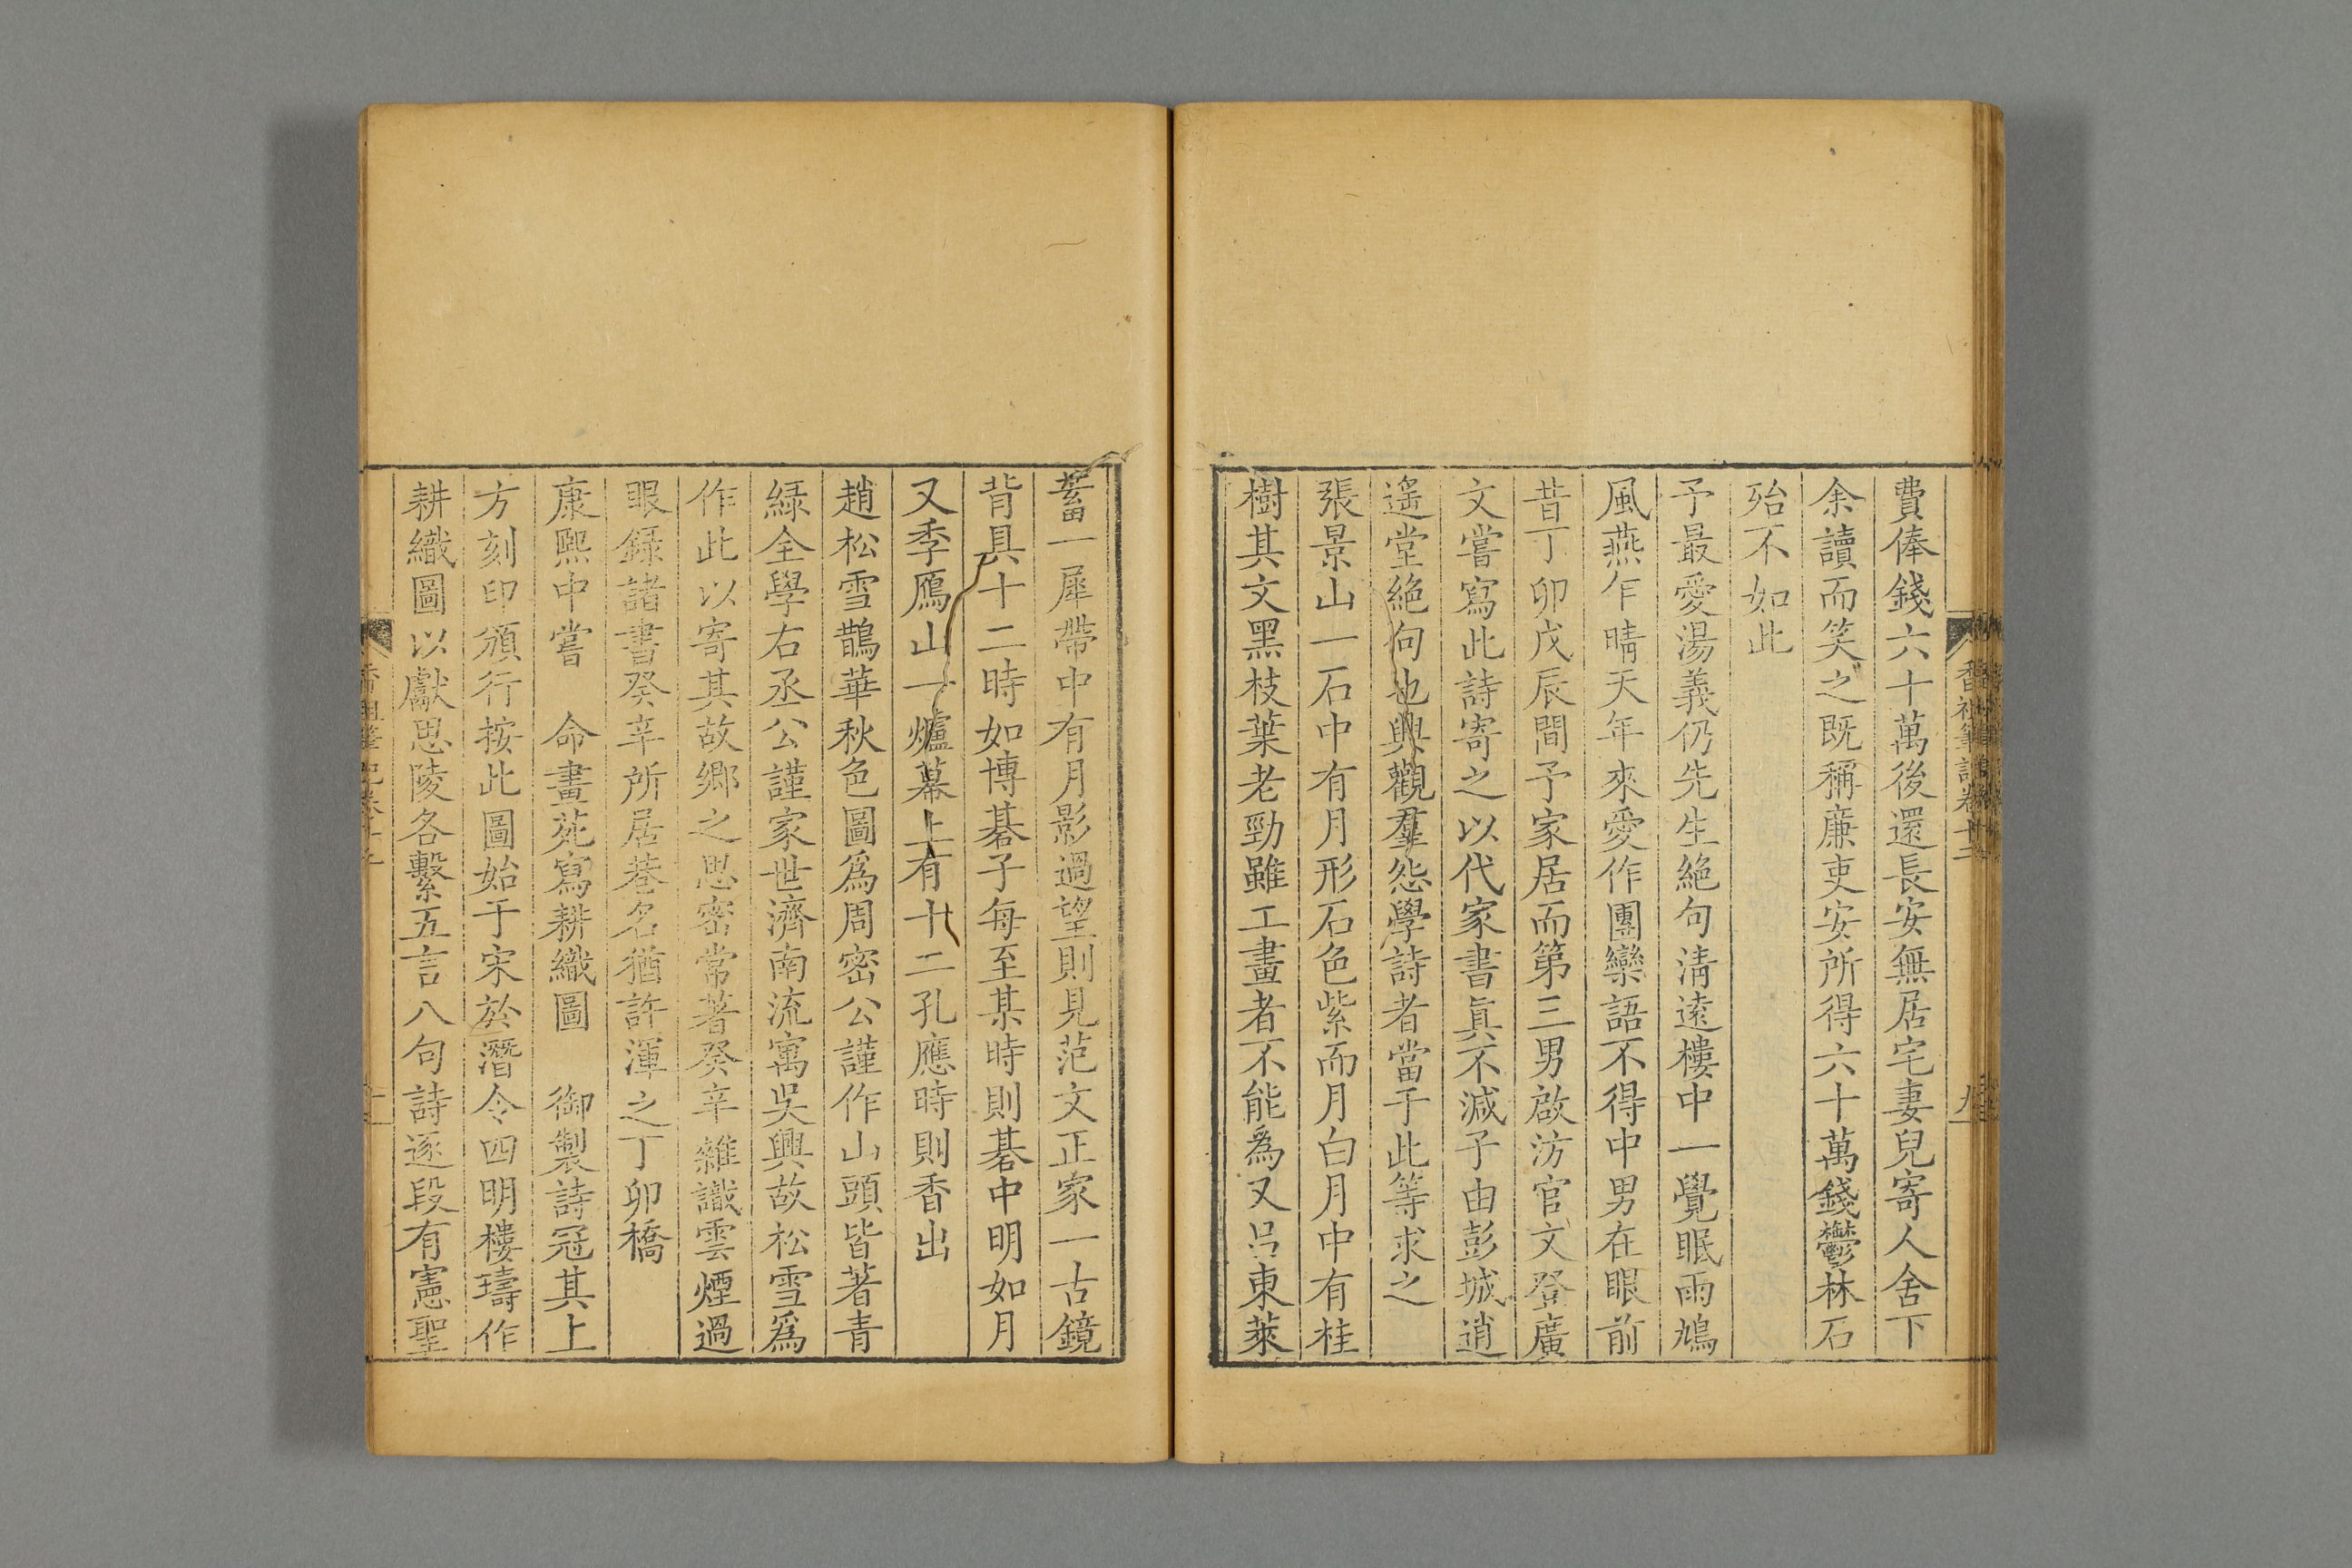 香祖筆記卷十二
九
費俸錢六十萬後還長安無居宅妻兒寄人舍下
余讀而笑之旣稱廉吏安所得六十萬錢鬱林石
殆不如此
予最愛湯義仍先生絕句淸遠樓中一覺眠雨鳩
風燕乍晴天年來愛作團欒語不得中男在眼前
昔丁卯戊辰間予家居而第三男啟汸官文登廣
文嘗寫此詩寄之以代家書眞不減子由彭城逍
遙堂絕句也興觀羣怨學詩者當于此等求之
張景山一石中有月形石色紫而月白月中有桂
樹其文黑枝葉老勁雖工畫者不能爲又呂東萊
蓄一犀帶中有月影過望則見范文正家一古鏡
背具十二時如博棊子每至某時則棊中明如月
又季鴈山一爐幕上有十二孔應時則香出
趙松雪鵲華秋色圖爲周密公謹作山頭皆著靑
綠全學右丞公謹家世濟南流寓吳興故松雪爲
作此以寄其故鄕之思密常著癸辛雜識雲煙過
眼錄諸書癸辛所居巷名猶許渾之丁卯橋
康熙中嘗　命畫苑寫耕織圖　御製詩冠其上
方刻印頒行按此圖始于宋於潛令四明樓璹作
耕織圖以獻思陵各繫五言八句詩逐段有憲聖